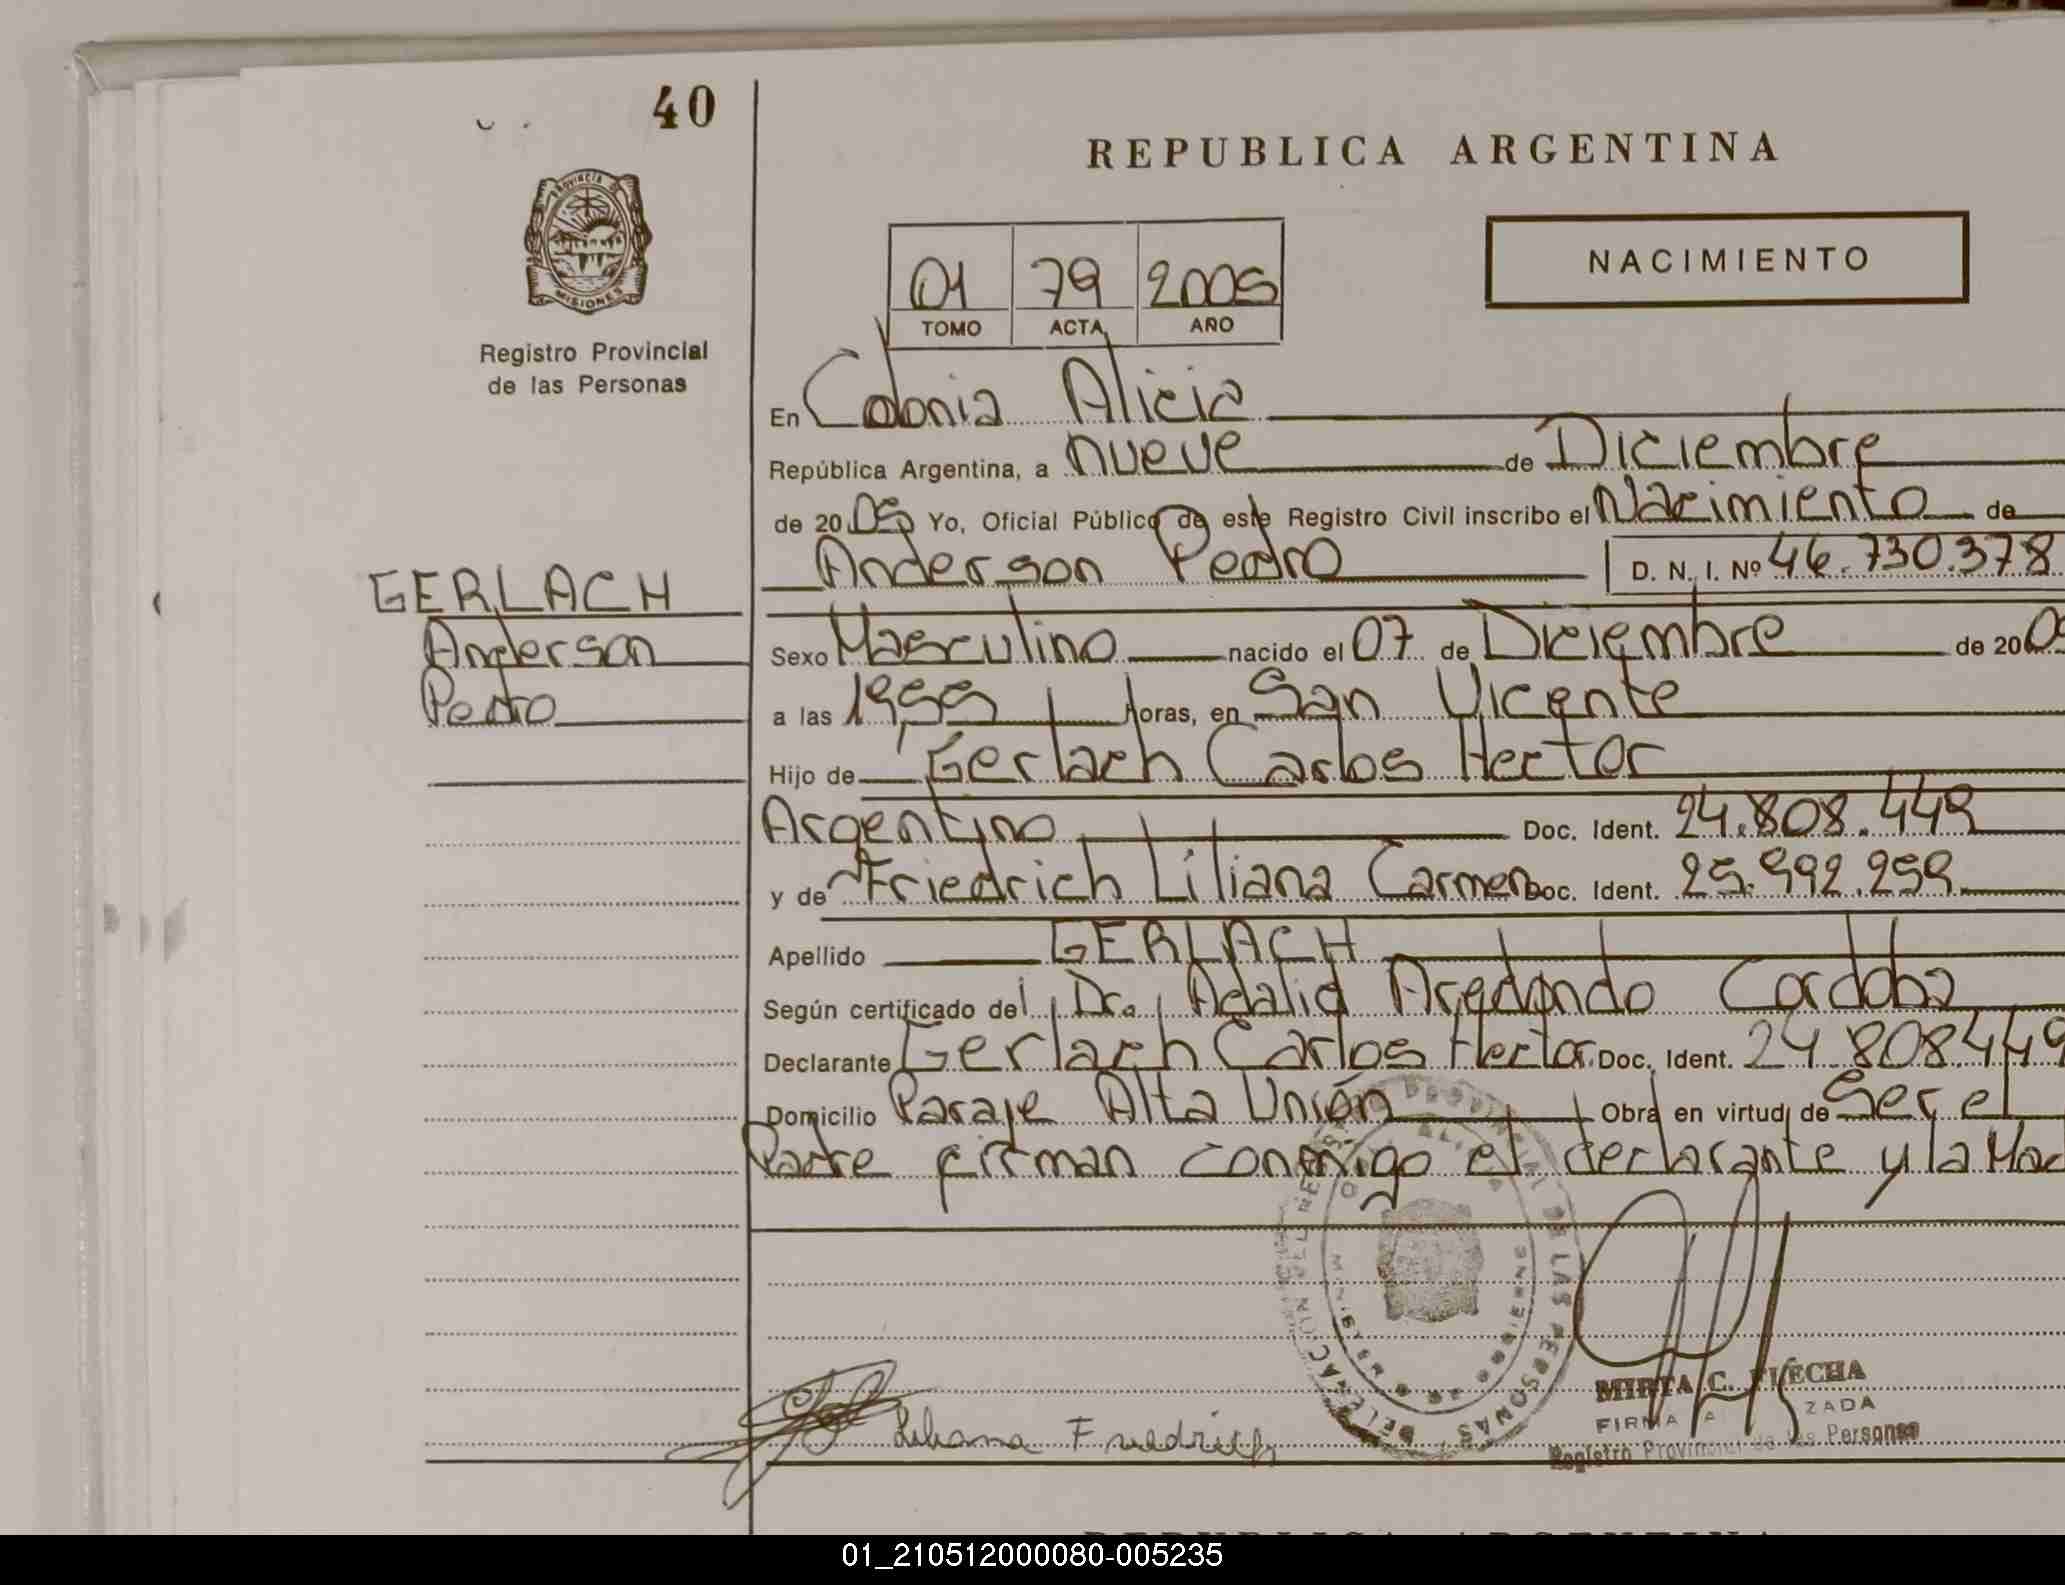 40
REPUBLICA ARGENTINA
PROVINCIA DE
MISIONES
Registro Provincial
de las Personas
NACIMIENTO
01 79 2005
TOMO ACTA AÑO
En Colonia Alicia
República Argentina, a nueve de Diciembre
de 20 05 Yo, Oficial Público de este Registro Civil inscribo el Nacimiento de
Anderson Pedro D. N. I. Nº 46.730.378
GERLACH
Anderson
Pedro
Sexo Masculino nacido el 07 de Diciembre de 20 0
a las 19,55 horas, en San Vicente
Hijo de Gerlach Carlos Hector
Argentino Doc. Ident. 24.808.449
y de Friedrich Liliana Carmen Doc. Ident. 25.992.259
Apellido GERLACH
Según certificado del Dr. Adalid Aredondo Cordoba
Declarante Gerlach Carlos Hector Doc. Ident. 24 808449
Domicilio Paraje Alta Unión Obra en virtud de Ser el
Padre firman conmigo el declarante y la Mad
Liliana Friedrich
MIRTA C. FLECHA
FIRMA
Registro Provincial de las Personas
01_210512000080-005235